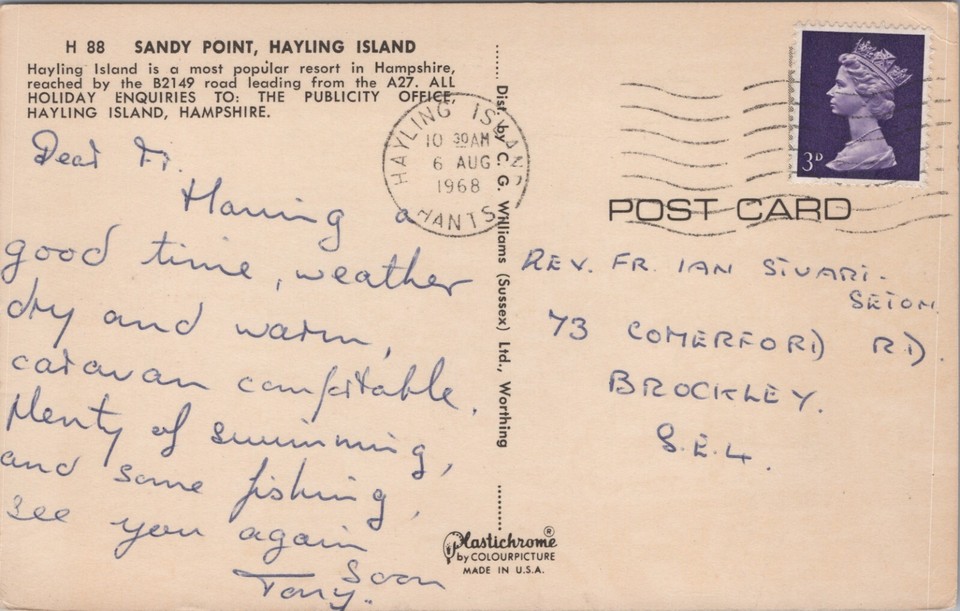 H 88 SANDY POINT, HAYLING ISLAND
Hayling Island is a most popular resort in Hampshire,
reached by the B2149 road leading from the A27. ALL
HOLIDAY ENQUIRIES TO: THE PUBLICITY OFFICE,
HAYLING ISLAND, HAMPSHIRE.
Dear Fr.
Having a
good time, weather
dry and warm,
caravan comfortable.
Plenty of swimming,
and some fishing,
see you again
soon
Tony.
Dist. by C. G. Williams (Sussex) Ltd., Worthing
HAYLING ISLAND
10 30AM
6 AUG
1968
HANTS
3D
POST CARD
REV. FR. IAN STUART.
SETON
73 COMERFORD RD.
BROCKLEY.
S.E.4.
Plastichrome®
by COLOURPICTURE
MADE IN U.S.A.